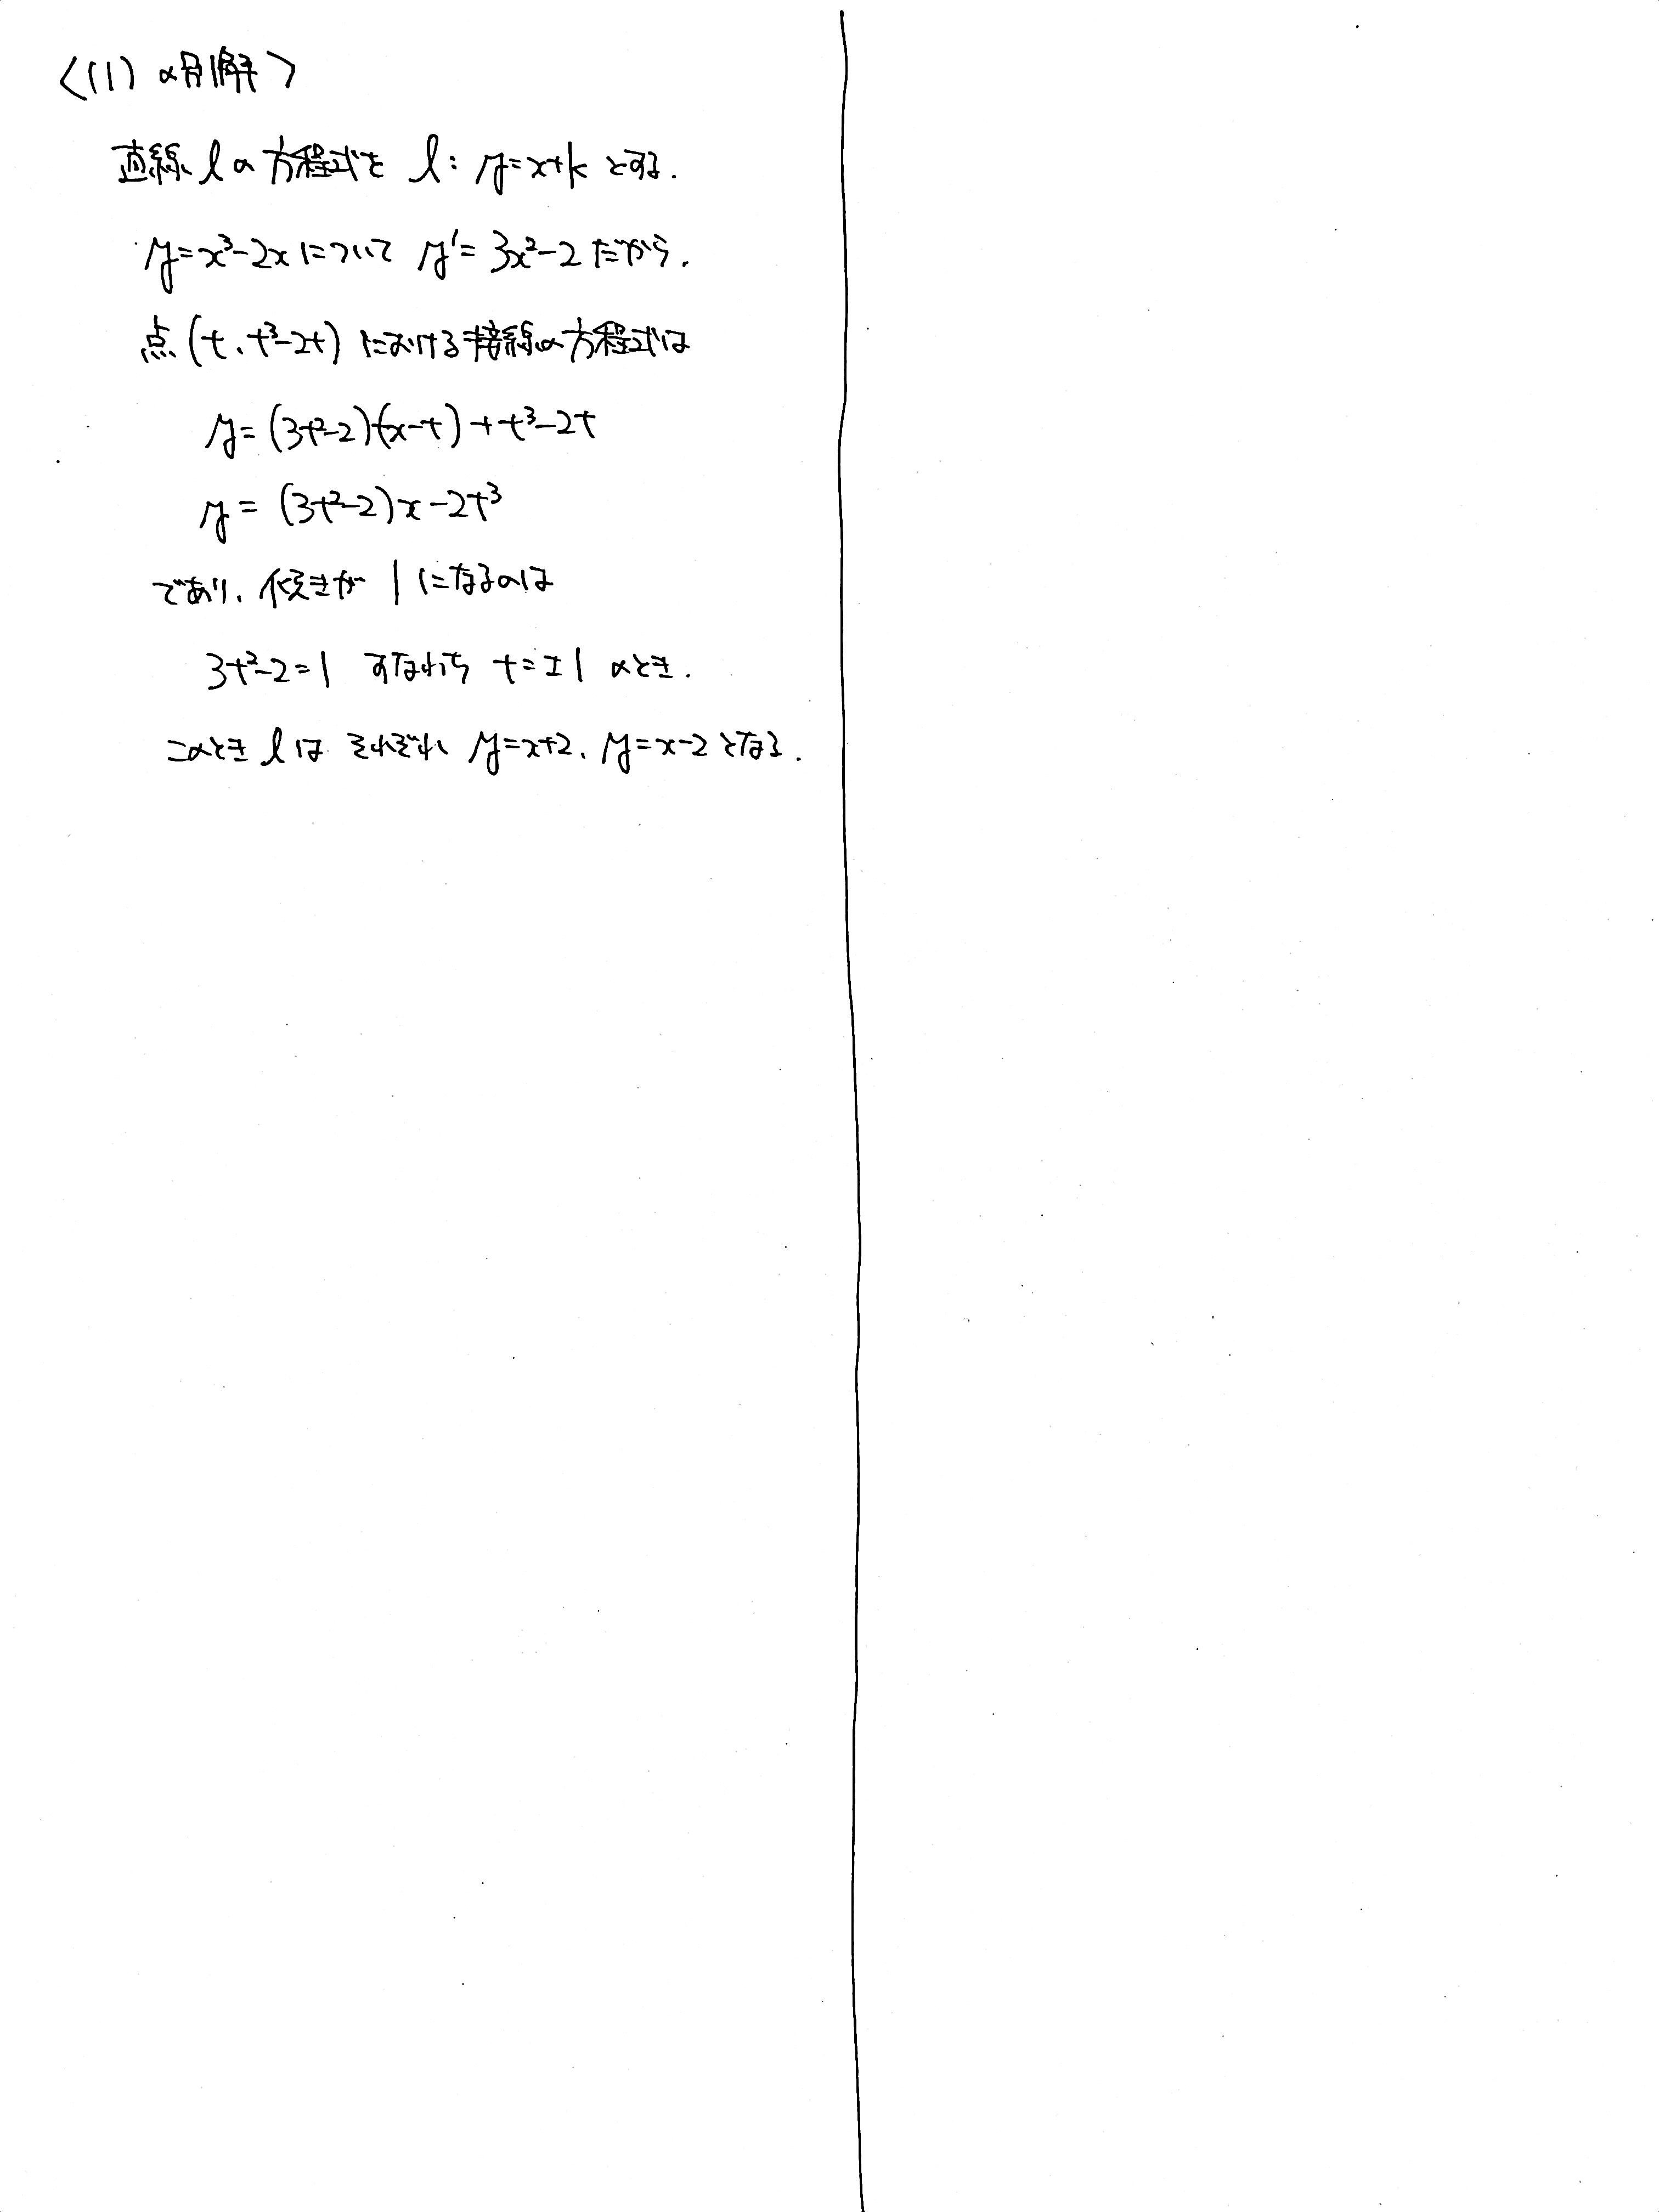 <(1)の別解>
直線lの方程式を l: y=x+k とする.
y=x³-2xについて y'=3x²-2だから,
点(t, t³-2t)における接線の方程式は
y=(3t²-2)(x-t)+t³-2t
y=(3t²-2)x-2t³
であり、傾きが1になるのは
3t²-2=1 すなわち t=±1 のとき.
このときlは それぞれ y=x+2, y=x-2となる.